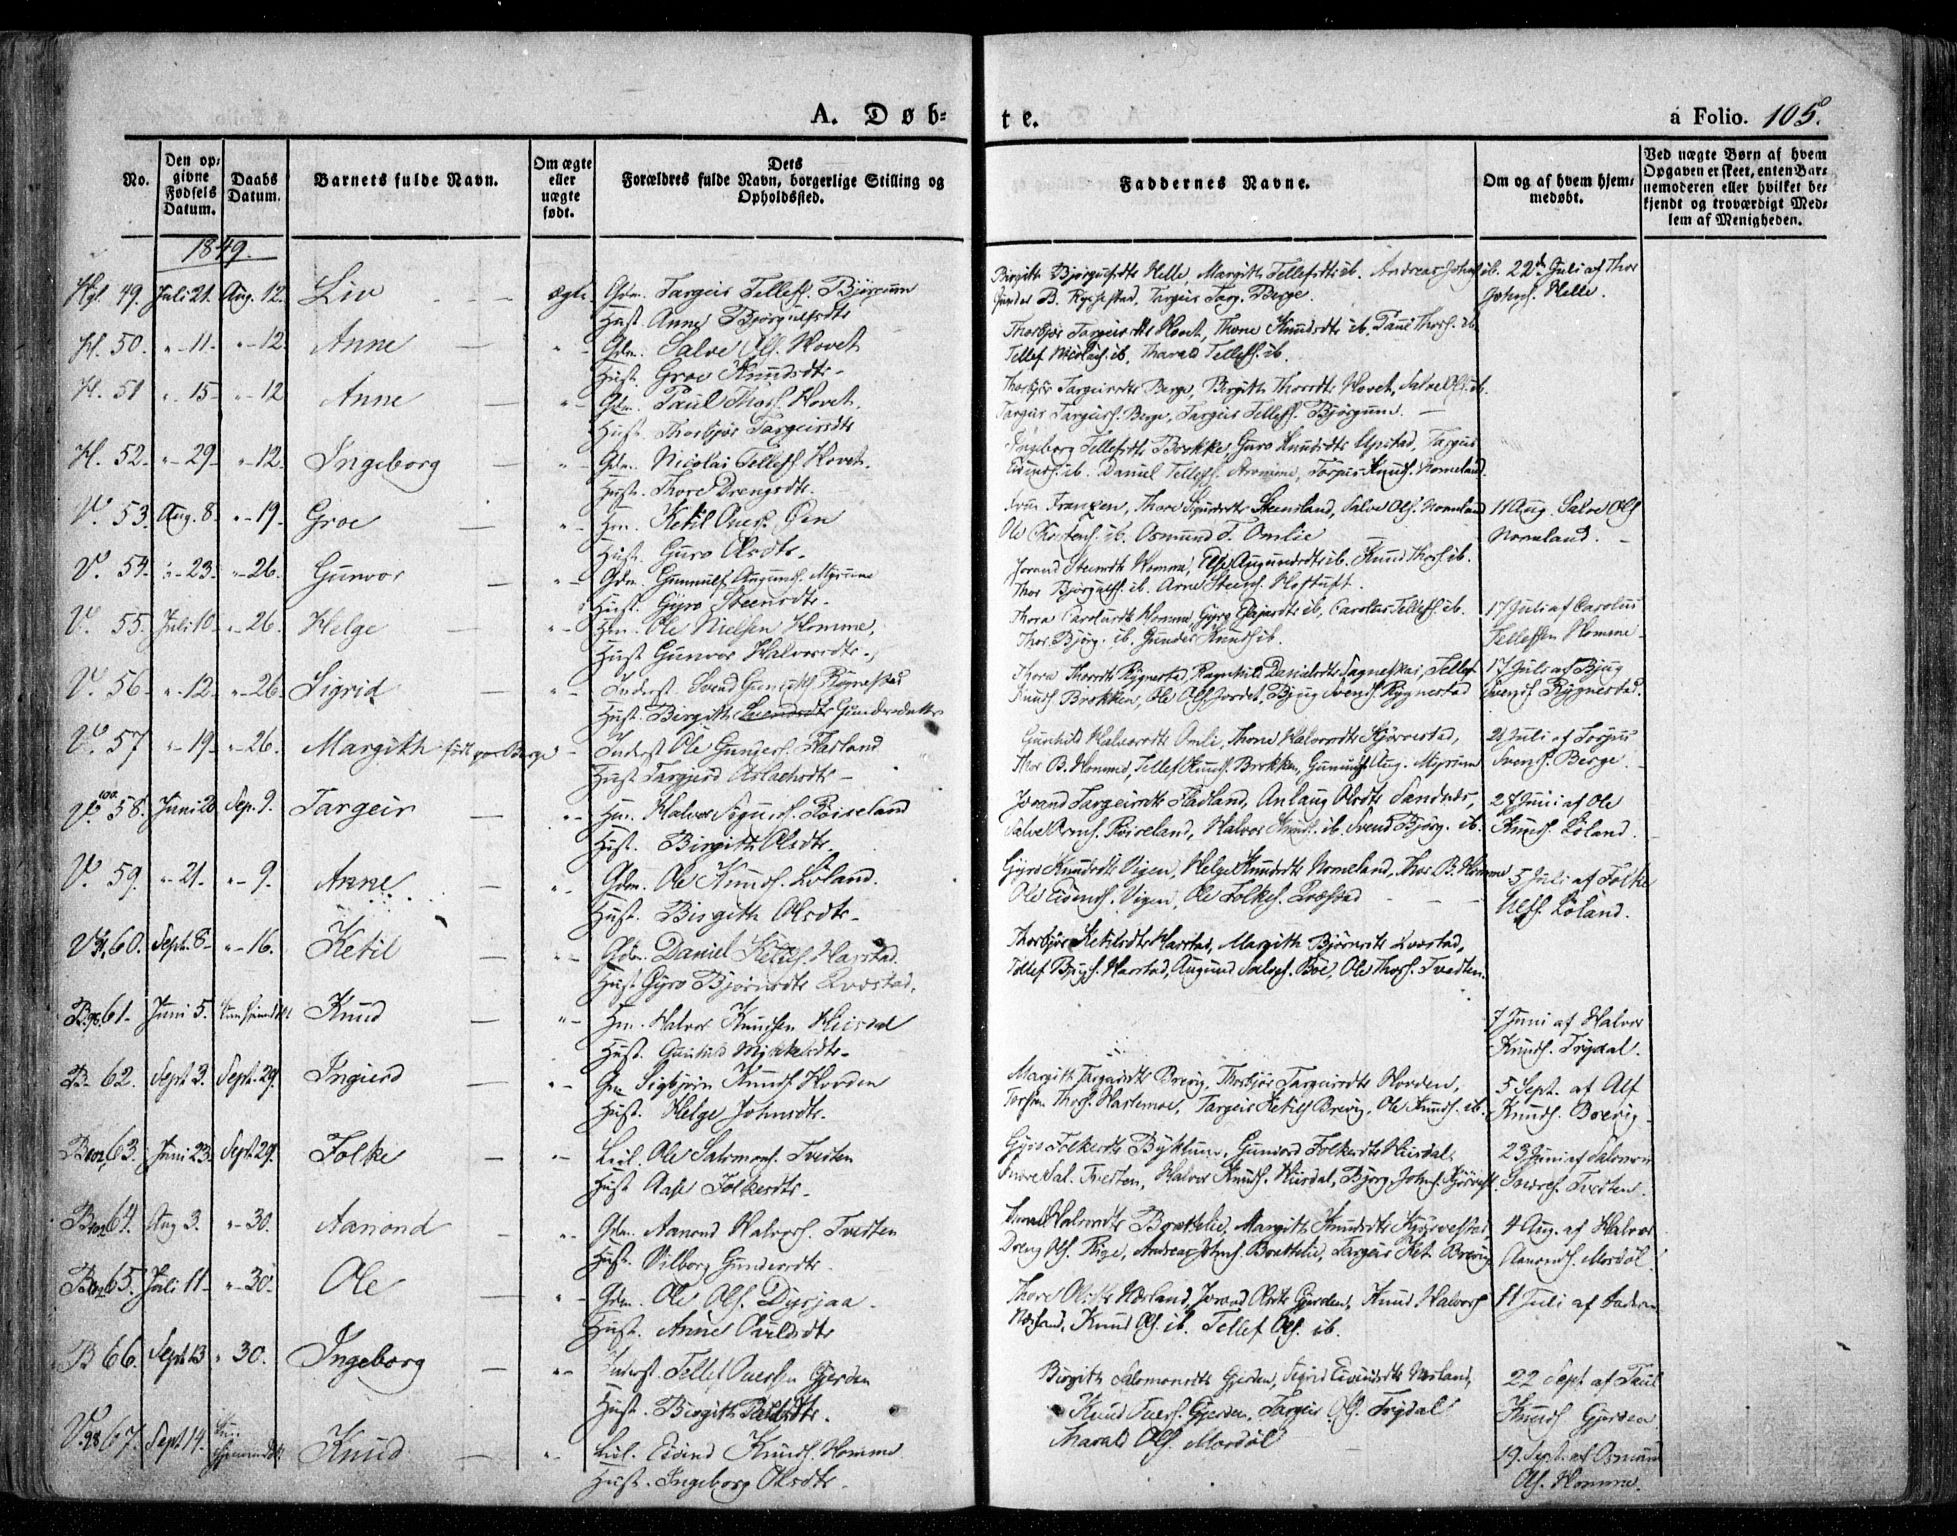 A. Døb-te.
á Folio. 105.
No.
Den op-givne Fødsels Datum.
Daabs Datum.
Barnets fulde Navn.
Om ægte eller uægte født.
Dets Forældres fulde Navn, borgerlige Stilling og Opholdssted.
Faddernes Navne.
Om og af hvem hjem-medøbt.
Ved uægte Børn af hvem Opgaven er skeet, enten Bar-nemoderen eller hvilket be-kjendt og troværdigt Med-lem af Menigheden.
1849.
49. Juli 21. Aug. 12. Liv ægte. Gdm. Targeis Tellefs. Bjørgum
Hust. Anne Bjørgulfsdtr
Birgith Bjørgulfsdtr Helle, Margith Tellefsdtr ib. Andreas Johns. ib.
Gunder B. Rychestad, Targeis Targ. Berge.
22de Juli af Thor
Johns. Helle.
H. 50. "-11- "-12. Anne "- Gdm. Salve Ols. Hovet
Hust. Groe Knudsdtr-
Thorbjør Targeisdtr Hovet, Thone Knudsdtr ib. Paul Thors. ib.
Tellef Nicolais. ib. Tharald Tellefs. ib.
H. 51 "-15- "-12 Anne "- Gdm. Paul Thors. Hovet.
Hust. Thorbjør Targeisdtr
Thorbjør Targeisdtr Berge, Birgith Thorsdtr. Hovet, Salve Ols. ib.
Targeis Targeis. Berge, Targeis Tellefs. Bjørgum.
H. 52. "-29- "-12. Ingeborg "- Gdm. Nicolai Tellefs. Hovet.
Hust. Thore Drengsdtr.
Ingeborg Tellefsdtr Brokke, Guro Knudsdtr Upstad, Targeis
Eivinds. ib. Daniel Tellefs. Torjus Knuds. Nomeland.
V. 53. Aug. 8. "-19- Groe "- Hm. Ketil Aves. Øen
Hust. Guro Olsdtr.
Thore Sigurdsdtr Steensland, Salve Ols. Nomeland
Ole ib. Osmund T. Omlie
11 Aug. Salve Ols
Nomeland.
V. 54. "-23. "-26. Gunvor "- Gdm. Gunnulf Augunds. Myrum
Hust. Gyro Steensdtr.
Jorand Steensdtr Homme, Augundsdtr ib. Knud Thors. ib.
Thor Bjørgulfs. ib. Arne Steens. Hoftuft.
V. 55. Juli 10- "-26. Helge "- Hm. Ole Nielsen Homme.
Hust Gunvor Halvorsdtr.
Thora Carolusdtr Homme, Gyro ib, Carolus Tellefs. ib.
Thor Bjørg. ib. Gunder Knuds. ib.
17 Juli af Carolus
Tellefsen Homme
V. 56- "-12. "-26. Sigrid "- Inderst. Svend Gunulfs. Rygnestad
Hust. Birgith Svendsdtr Gundersdatter
Thora Thorsdtr Rygnestad, Ragnhild Danielsdtr Tellef
Knuds Brokken, Ole Ols. Jordet, Bjug Svends. Rygnestad
17 Juli af Bjug
Svends. Rygnestad.
V. 57 "-19- "-26. Margith født paa Berge - Inderst Ole Gunders. Harland
Hust. Targjerd Aslachsdtr-
Gunhild Halvorsdtr Omli, Thone Halvorsdtr Kjørvestad,
Thor B. Homme, Tellef Knuds. Brokken, Gunulf Aug. Myrum
21 Juli af Torjus
Svens. Berge.
V. 58. Juni 20 Sep. 9. Targeir "- Hm. Halvor Sigurds. Røiseland
Hust. Birgith Olsdtr.
Jorand Targeirsdtr Fladland, Anlaug Olsdtr Sandnes,
Salve Arns. Røiseland, Halvor Knuds. ib. Svend Bjørg. ib.
27 Juni af Ole
Knuds. Løland.
V. 59. "-21. "-9. Anne "- Gdm. Ole Knuds. Løland.
Hust. Birgith Olsdtr-
Gyro Knudsdtr Vigen, Helge Knudsdtr Nomeland, Thor B. Homme
Ole Eivends. Vigen, Ole Folkes. Præstad
5 Juli af Folke
Ulfs. Løland.
60. Sept. 8- "-16. Ketil "- Gdm. Daniel Ketils. Harstad.
Hust Gyro Bjørnsdtr Qvestad.
Thorbjør Ketilsdtr Harstad, Margith Bjørnsdtr Qvestad,
Tellef Bjugs. Harstad, Augund Salves. Bøe, Ole Thors. Tvedten.
61- Juni 5. Knud "- Hm. Halvor Knudsen Heisdal
Hust. Gunhild Mikkelsdtr-
7 Juni af Halvor
Knuds. Trydal.
B. 62. Sept 3. Sept. 29. Ingierd "- Gm. Sigbjørn Knuds. Hovden
Hust. Helge Johnsdtr.
Margith Targeisdtr Brevig, Thorbjør Targeisdtr Hovden,
Torsten Thors. Hartemoe, Targeis Ketils Brevig, Ole Knuds. ib.
5 Sept. af Alf
Knuds. Brevig
63. Juni 23. Sept 29. Folke "- Leil. Ole Salomons. Tvedten
Hust Aase Folkesdtr.
Gyro Folkesdtr Byklum, Gunvord Folkesdtr Heisdal
Sal. Tvedten, Halvor Knuds. Heisdal, Bjørg Johns.
23 Juni af Salomon
Tvedten.
64. Aug 3. "-30. Aanond "- Gdm. Aanond Halvors. Tvedten
Hust. Vilborg Gundersdtr.
Halvorsdtr Brottelie, Margith Knudsdtr Kjørvestad,
Dreng Ols. Rige, Andreas Johns. Brottelie, Targeis Ket. Brevig
4 Aug. af Halvor
Aanonds. Mosdøl.
65. Juli 11- "-30- Ole "- Gdm. Ole Ols. Dysjaa.
Hust. Anne Qvildsdtr
Thore Olsdtr Næsland, Jorand Olsdtr Gjerden, Knud Halvors
Næsland, Knud Ols. ib. Tellef Ols. ib.
11 Juli af
B 66. Sept 13 " 30. Ingeborg "- Inderst. Tellef Gjerden
Hust. Birgith
Birgith Salomonsdtr Gjerden, Sigrid Eivindsdtr Næsland,
Knud Gjerden, Targeis Ols. Trydal
Harald Ols. Mosdøl
22 Sept af Paul
Knuds Gjerden
V. 67. Sept 14. Knud "- Leil. Eivind Knuds. Homme
Hust. Ingeborg Olsdtr.
19. Sept. af Osmund
Ols. Homme.